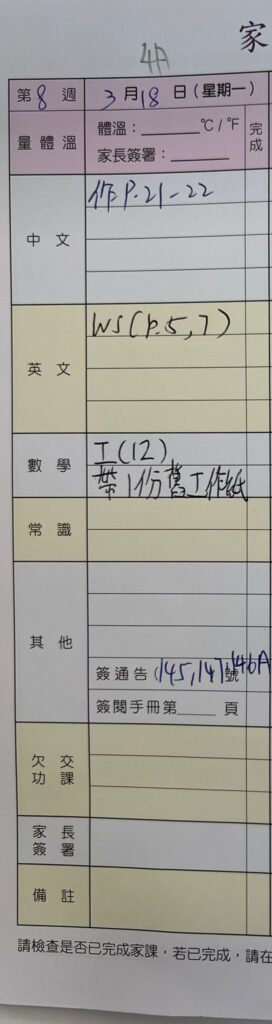 家
4A
第 8 週 3 月 18 日 (星期一)
量體溫 體溫：______ °C / °F 完成
家長簽署：______
中文 作P.21-22
英文 WS(P.5,7)
數學 工(12)
帶1份舊工作紙
常識
其他
簽通告(145,147號 146A
簽閱手冊第____頁
欠交功課
家長簽署
備註
請檢查是否已完成家課，若已完成，請在